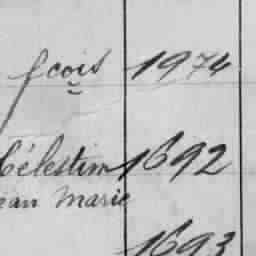 fcois 1974
Célestin 1692
Jean Marie
1693